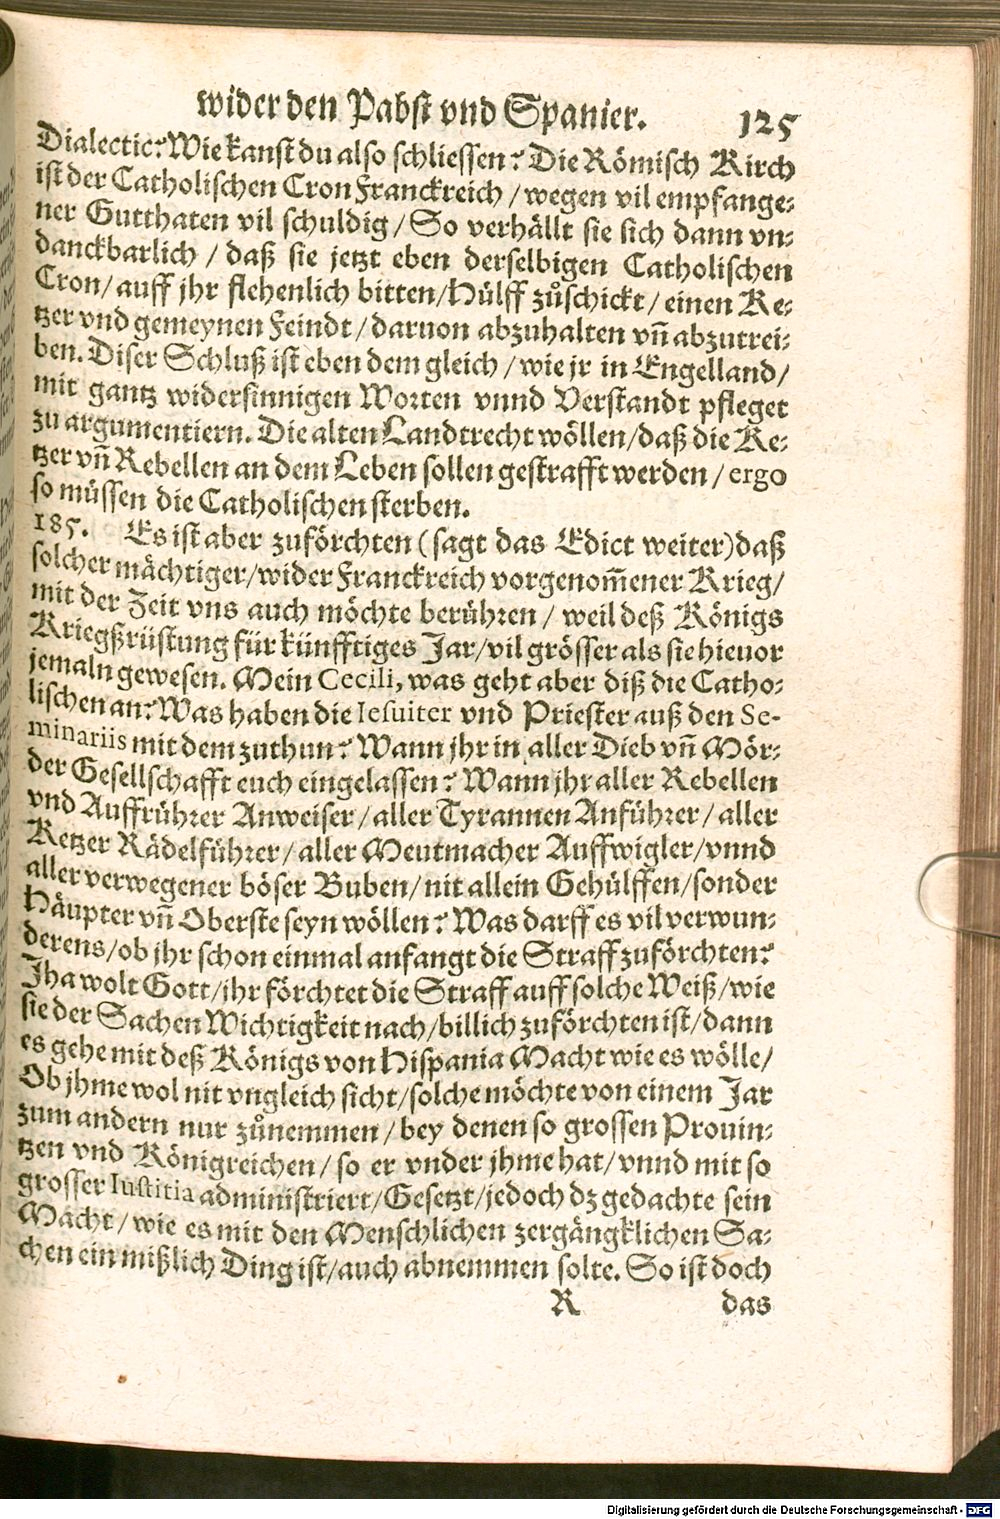 wider den Pabst vnd Spanier. 125
Dialectic? Wie kanst du also schliessen? Die Römisch Kirch
ist der Catholischen Cron Franckreich / wegen vil empfange-
ner Gutthaten vil schuldig / So verhällt sie sich dann vn-
danckbarlich / daß sie jetzt eben derselbigen Catholischen
Cron / auff jhr flehenlich bitten / Hülff zůschickt / einen Ke-
tzer vnd gemeynen Feindt / daruon abzuhalten vn̄ abzutrei-
ben. Diser Schluß ist eben dem gleich / wie jr in Engelland /
mit gantz widersinnigen Worten vnnd Verstandt pfleget
zu argumentiern. Die alten Landtrecht wöllen / daß die Ke-
tzer vn̄ Rebellen an dem Leben sollen gestrafft werden / ergo
so müssen die Catholischen sterben.
185. Es ist aber zuförchten (sagt das Edict weiter) daß
solcher mächtiger / wider Franckreich vorgenom̄ener Krieg /
mit der Zeit vns auch möchte berühren / weil deß Königs
Kriegßrüstung für künfftiges Jar / vil grösser als sie hieuor
jemaln gewesen. Mein Cecili, was geht aber diß die Catho-
lischen an? Was haben die Iesuiter vnd Priester auß den Se-
minariis mit dem zuthun? Wann jhr in aller Dieb vn̄ Mör-
der Gesellschafft euch eingelassen? Wann jhr aller Rebellen
vnd Auffrührer Anweiser / aller Tyrannen Anführer / aller
Ketzer Rädelführer / aller Meutmacher Auffwigler / vnnd
aller verwegener böser Buben / nit allein Gehülffen / sonder
Häupter vn̄ Oberste seyn wöllen? Was darff es vil verwun-
derens / ob jhr schon einmal anfangt die Straff zuförchten?
Jha wolt Gott / jhr förchtet die Straff auff solche Weiß / wie
sie der Sachen Wichtigkeit nach / billich zuförchten ist / dann
es gehe mit deß Königs von Hispania Macht wie es wölle /
Ob jhme wol nit vngleich sicht / solche möchte von einem Jar
zum andern nur zůnemmen / bey denen so grossen Prouin-
tzen vnd Königreichen / so er vnder jhme hat / vnnd mit so
grosser Iustitia administriert / Gesetzt / jedoch dz gedachte sein
Macht / wie es mit den Menschlichen zergängklichen Sa-
chen ein mißlich Ding ist / auch abnemmen solte. So ist doch
R das
Digitalisierung gefördert durch die Deutsche Forschungsgemeinschaft - DFG